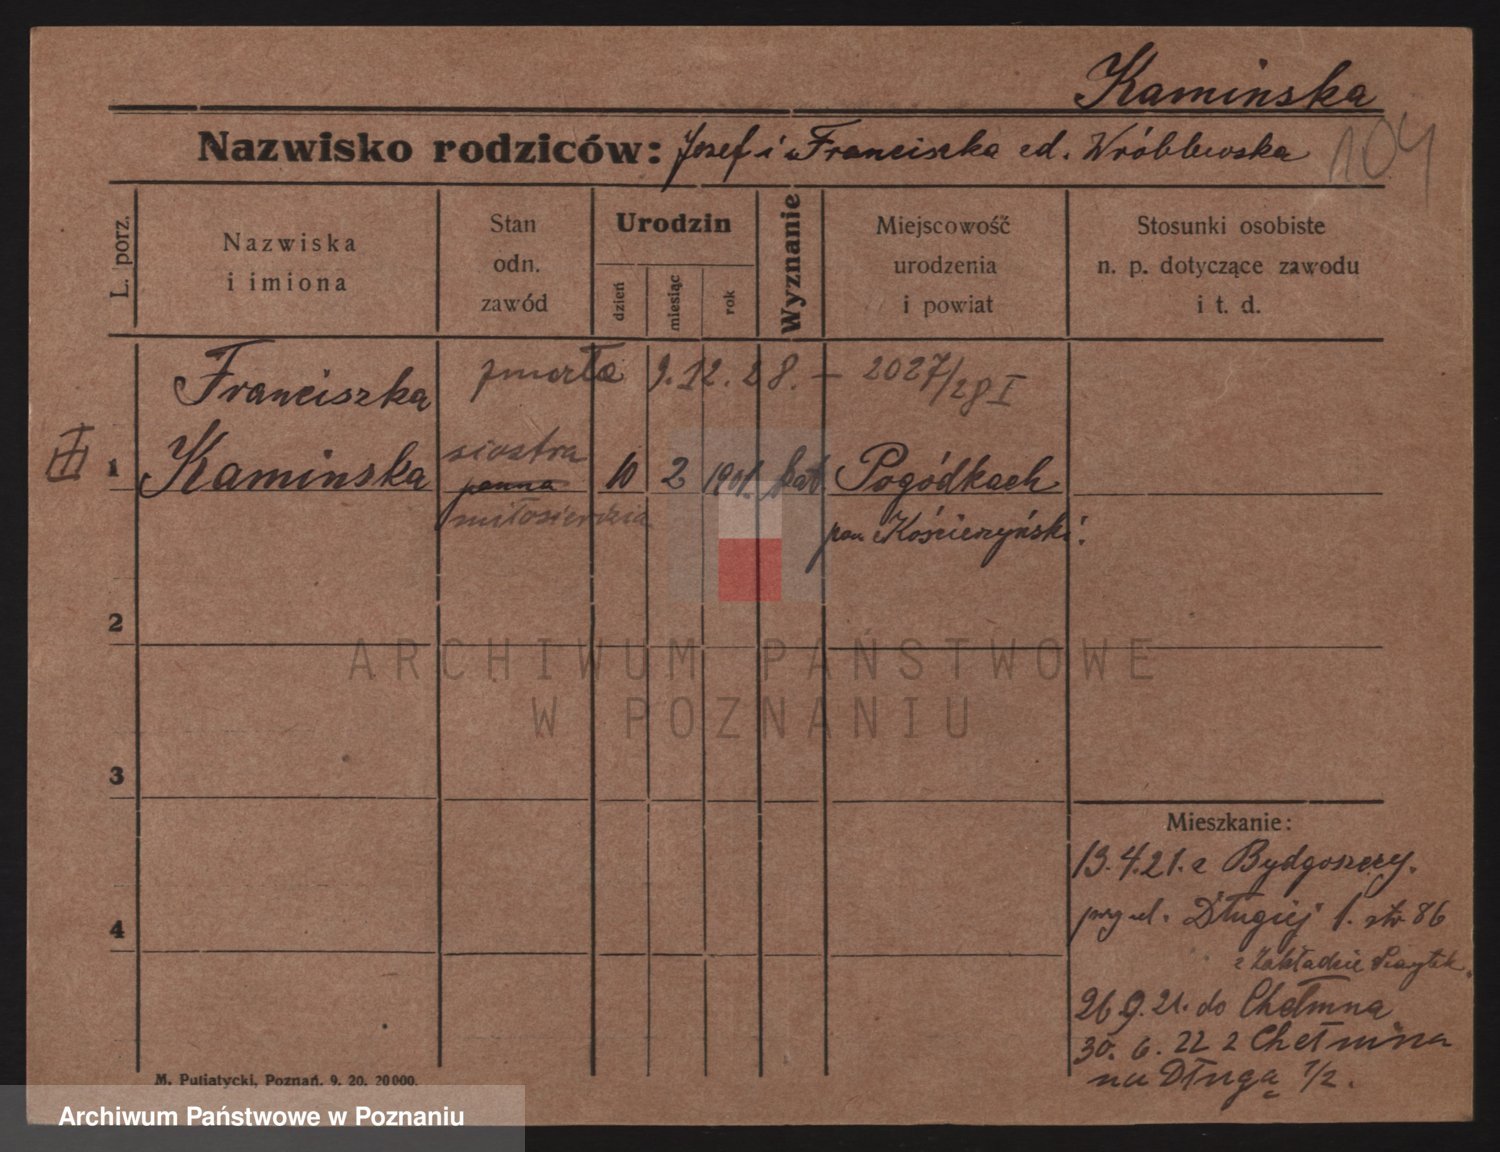 Kaminska
Nazwisko rodziców: Josef i Franciszka ed. Wróblewska
104
L. porz.
Nazwiska
i imiona
Stan
odn.
zawód
Urodzin
dzień
miesiąc
rok
Wyznanie
Miejscowość
urodzenia
i powiat
Stosunki osobiste
n. p. dotyczące zawodu
i t. d.
zmarła 9.12.28. – 2027/28 I
Franciszka
siostra
III 1 Kaminska panna 10 2 1901. kat Pogódkach
miłosierdzia pow. Kościerzyński.
2
ARCHIWUM PAŃSTWOWE
W POZNANIU
3
Mieszkanie:
13.4.21. z Bydgoszczy.
4
przy ul. Długiej 1. str 86
z Zakładzie
26.9.21. do Chełmna
30. 6. 22 z Chełmna
na Długą 1/2.
M. Putiatycki, Poznań. 9. 20. 20000.
Archiwum Państwowe w Poznaniu